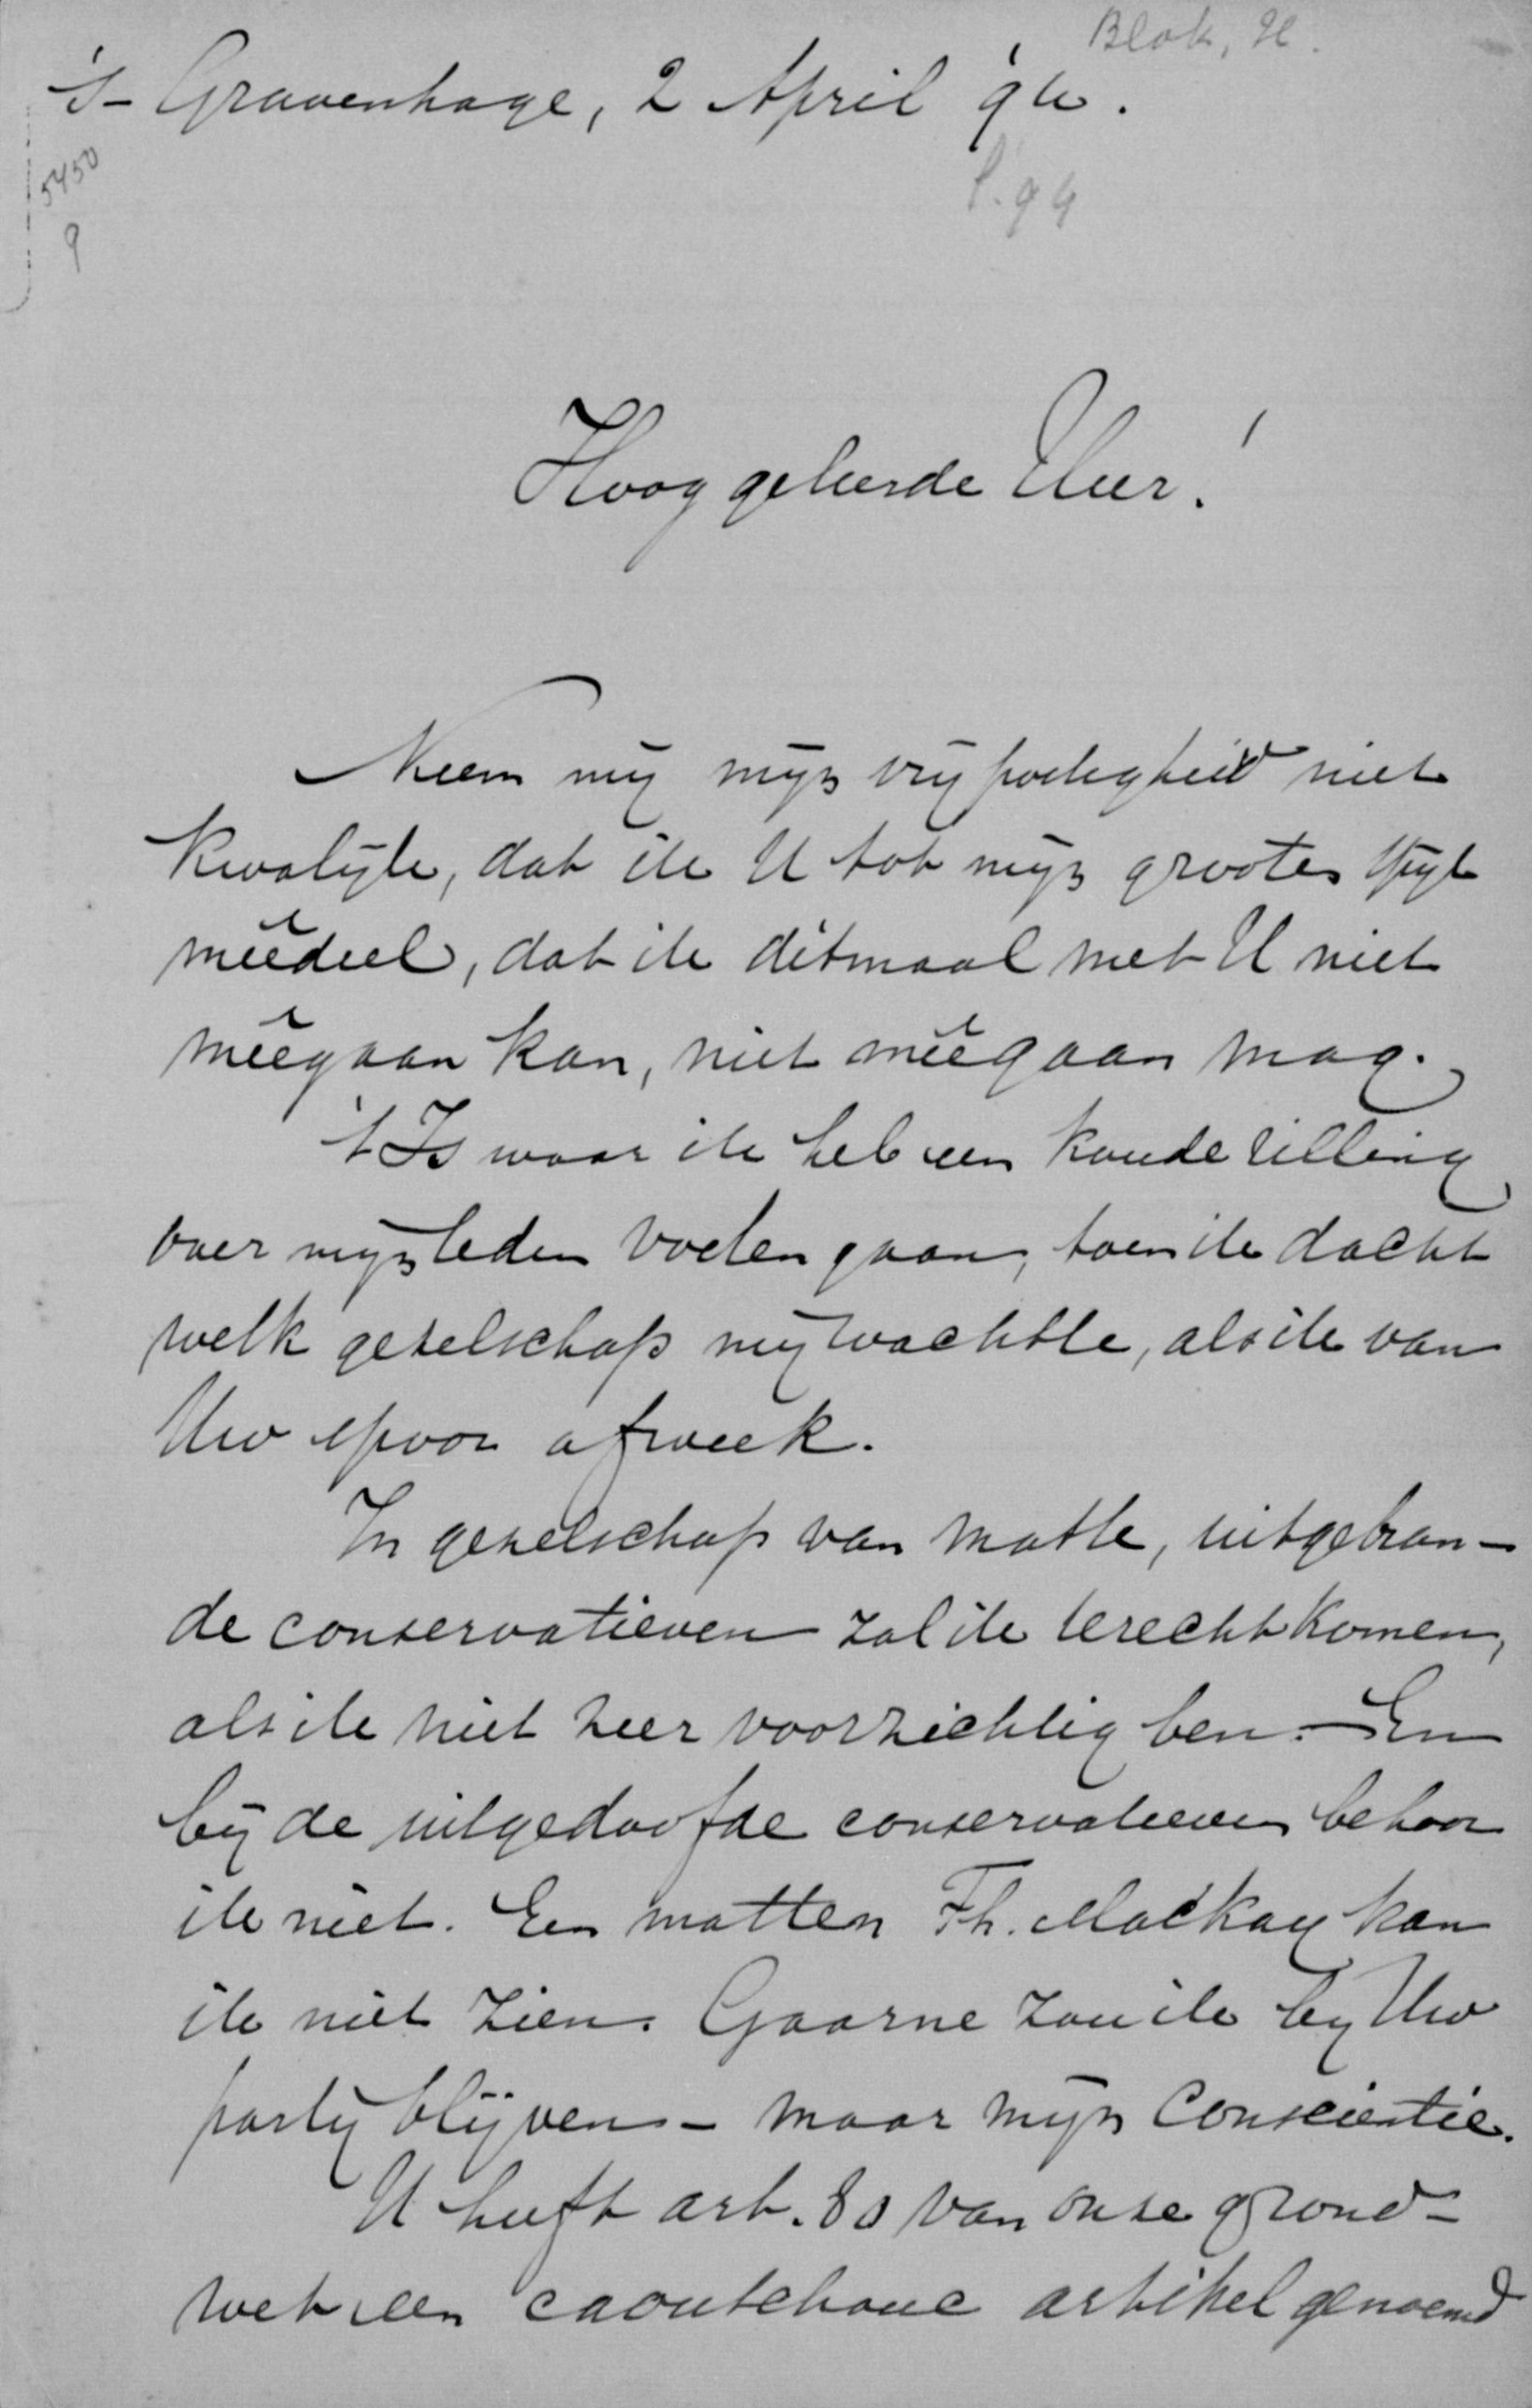 Blok, H.
's-Gravenhage, 2 April '94.
5450
9
Hooggeleerde Heer!
Neem mij mijn vrijpostigheid niet
kwalijk, dat ik U tot mijn groote spijt
meêdeel, dat ik ditmaal met U niet
meêgaan kan, niet meêgaan mag.
't Is waar ik heb een koude rilling
over mijn leden voelen gaan, toen ik dacht
welk gezelschap mij wachtte, als ik van
Uw spoor afweek.
In gezelschap van matte, uitgebran-
de conservatieven zal ik terechtkomen,
als ik niet zeer voorzichtig ben. - En
bij de uitgedoofde conservatieven behoor
ik niet. Een matten Th. Mackay kan
ik niet zien. Gaarne zou ik bij Uw
partij blijven - maar mijn Conscientie.
U heeft art. 80 van onze grond-
wet een caoutchouc artikel genoemd